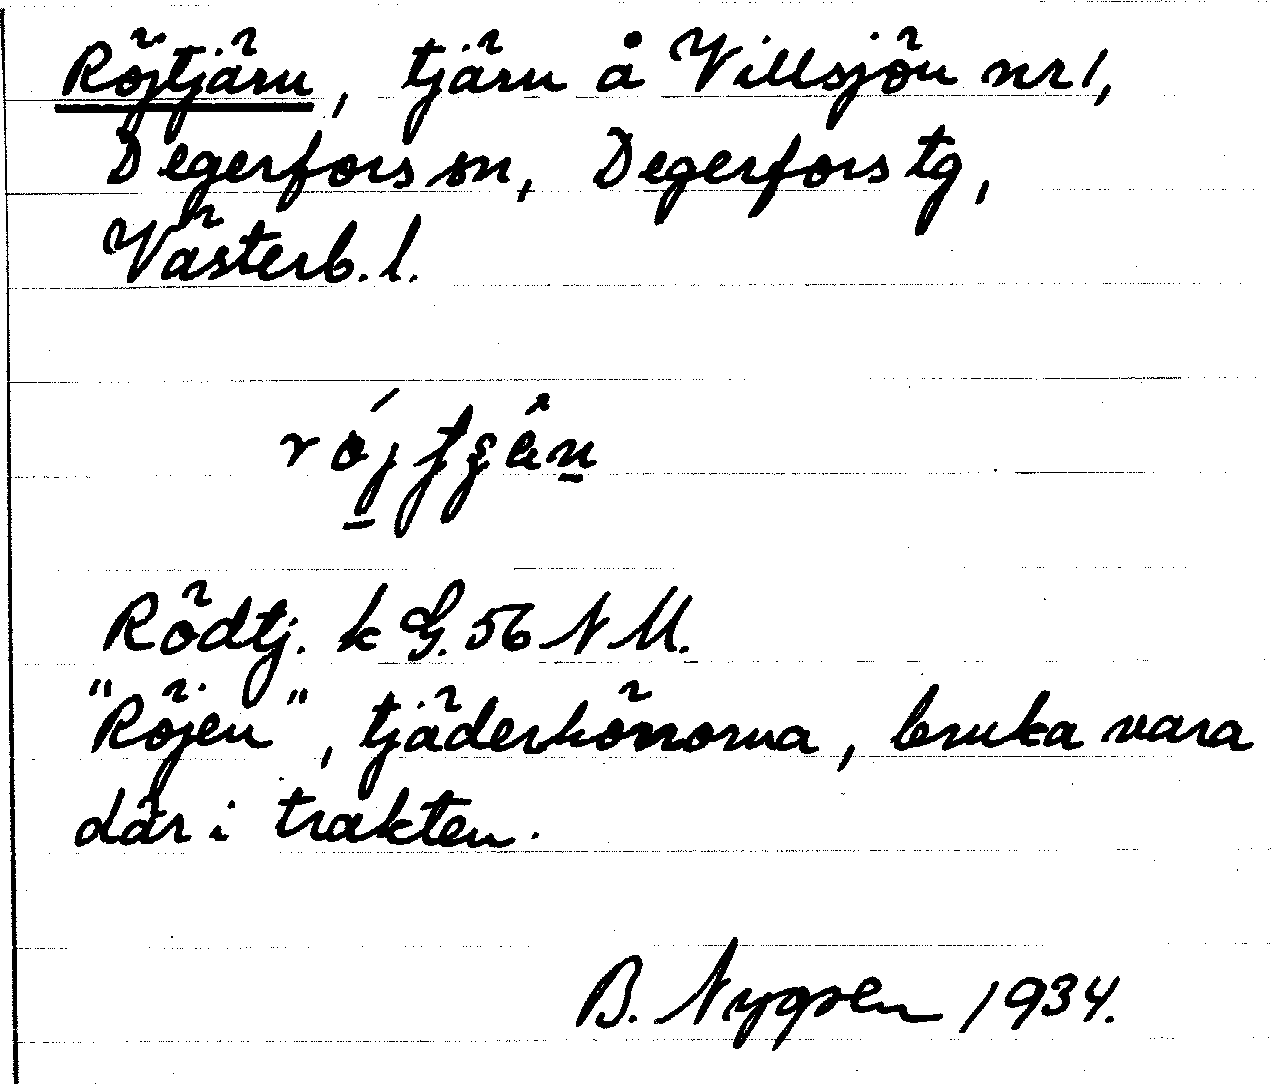 Röjtjärn, tjärn å Villsjön nr 1,
Degerfors sn, Degerfors tg,
Västerb. l.
Rödtj. k G. 56 N M.
"Röjen", tjäderhönorna, bruka vara
där i trakten.
B. Nygren 1934.